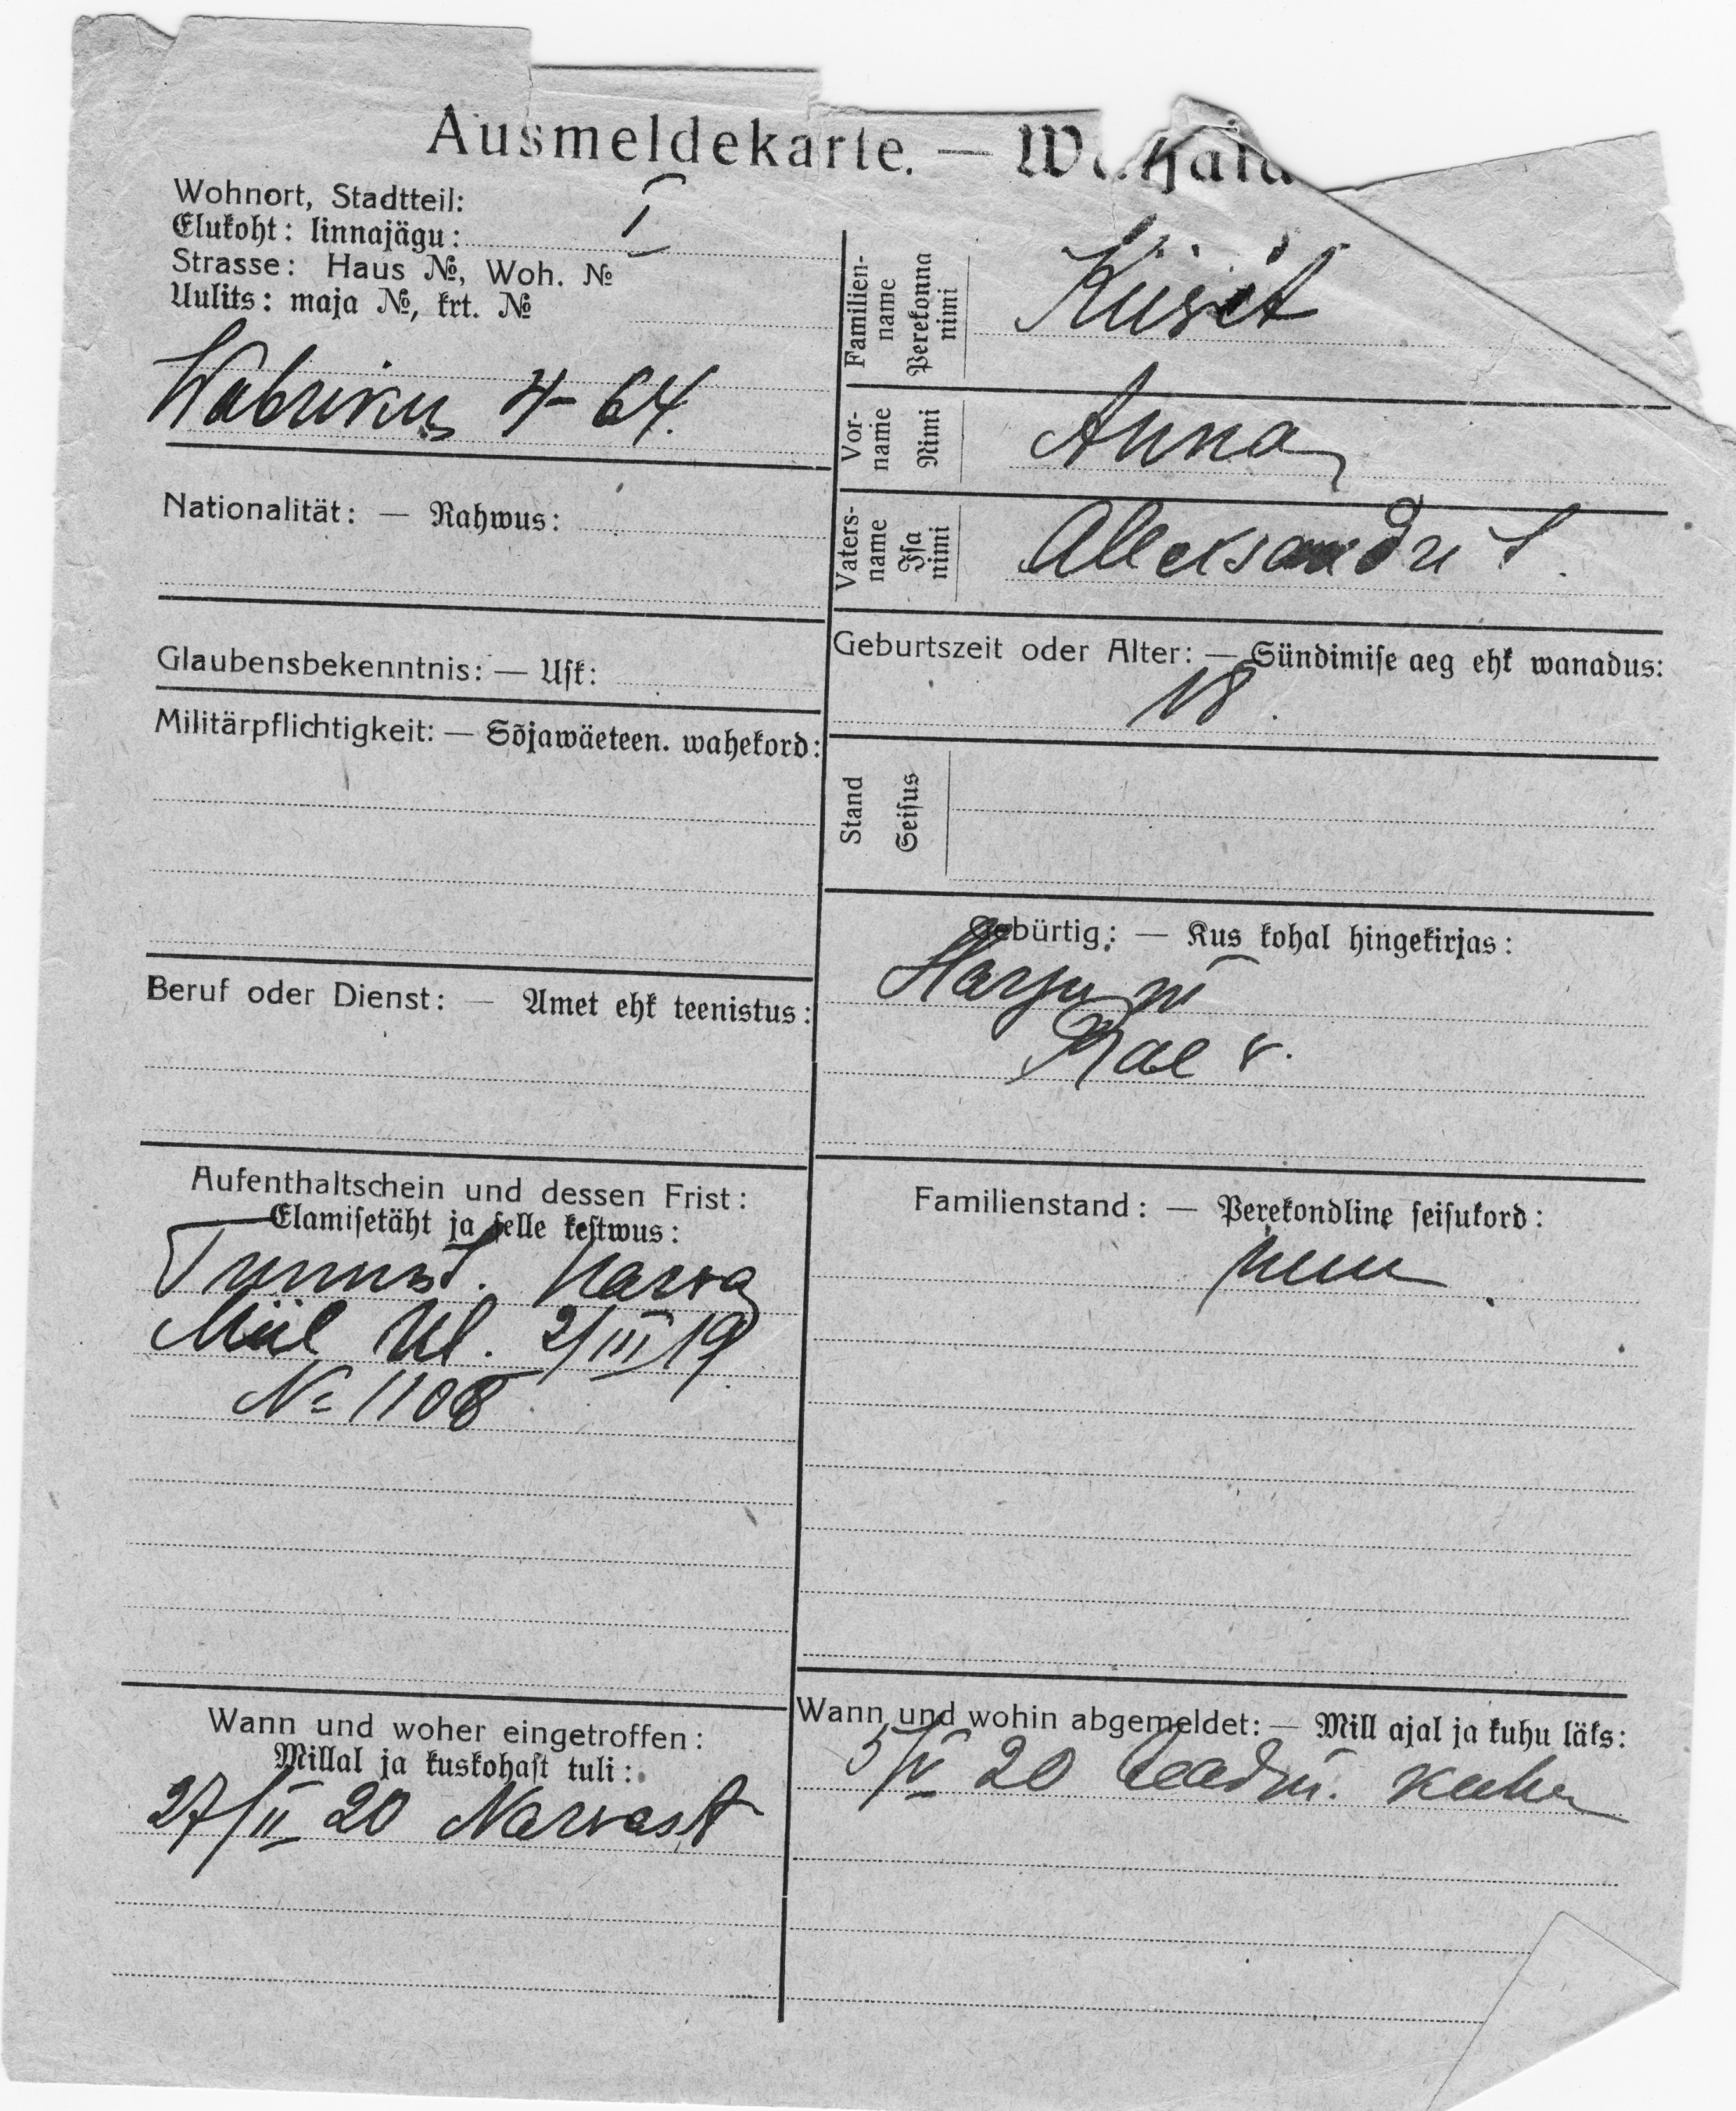 Ausmeldekarte. —
Wohnort, Stadtteil:
Elukoht: linnajägu: I
Strasse: Haus №, Woh. №
Uulits: maja №, krt. №
Wabriku 4-64.
Nationalität: — Rahwus:
Glaubensbekenntnis: — Usk:
Militärpflichtigkeit: — Sõjawäeteen. wahekord:
Beruf oder Dienst: — Amet ehk teenistus:
Aufenthaltschein und dessen Frist:
Elamisetäht ja selle kestwus:
Narva
Ül. 2/III 19
№ 1108
Wann und woher eingetroffen:
Millal ja kuskohast tuli:
27/II 20 Narvast
Familien-
name
Perekonna
nimi
Vor-
name
Nimi
Anna
Vaters-
name
Isa
nimi
Aleksandri t.
Geburtszeit oder Alter: — Sündimise aeg ehk wanadus:
18.
Stand
Seisus
Gebürtig: — Kus kohal hingekirjas:
Harju m
Rae v.
Familienstand: — Perekondline seisukord:
Wann und wohin abgemeldet: — Mill ajal ja kuhu läks:
5/IV 20 teadm. kuhu